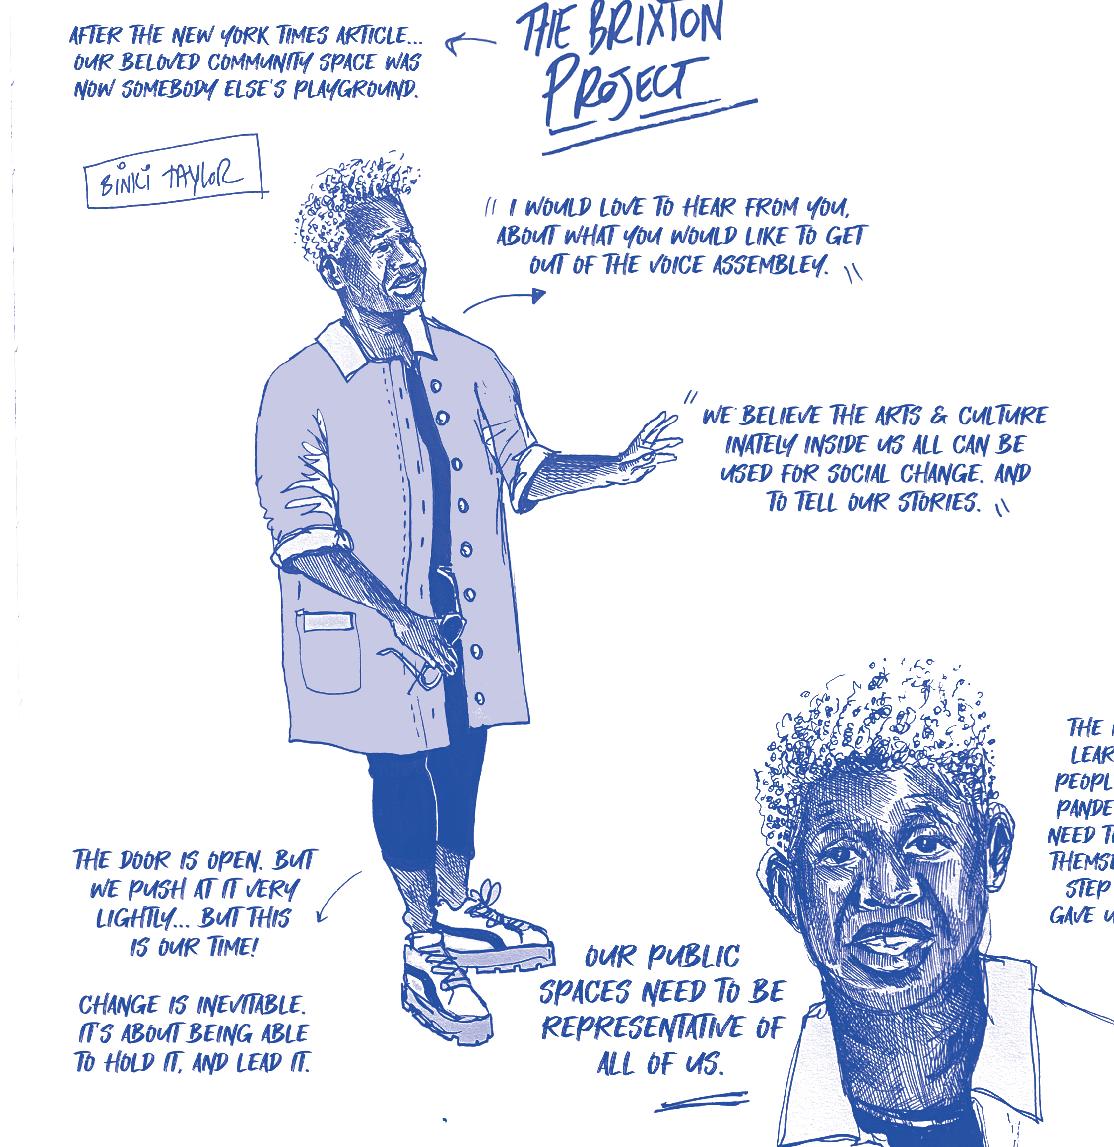 THE BRIXTON
PROJECT
AFTER THE NEW YORK TIMES ARTICLE...
OUR BELOVED COMMUNITY SPACE WAS
NOW SOMEBODY ELSE'S PLAYGROUND.
BINKI TAYLOR
" I WOULD LOVE TO HEAR FROM YOU,
ABOUT WHAT YOU WOULD LIKE TO GET
OUT OF THE VOICE ASSEMBLEY. "
" WE BELIEVE THE ARTS & CULTURE
INATELY INSIDE US ALL CAN BE
USED FOR SOCIAL CHANGE. AND
TO TELL OUR STORIES. "
THE DOOR IS OPEN. BUT
WE PUSH AT IT VERY
LIGHTLY... BUT THIS
IS OUR TIME!
CHANGE IS INEVITABLE.
IT'S ABOUT BEING ABLE
TO HOLD IT, AND LEAD IT.
OUR PUBLIC
SPACES NEED TO BE
REPRESENTATIVE OF
ALL OF US.
THE
LEAR
PEOPL
PANDE
NEED T
THEMSE
STEP
GAVE U